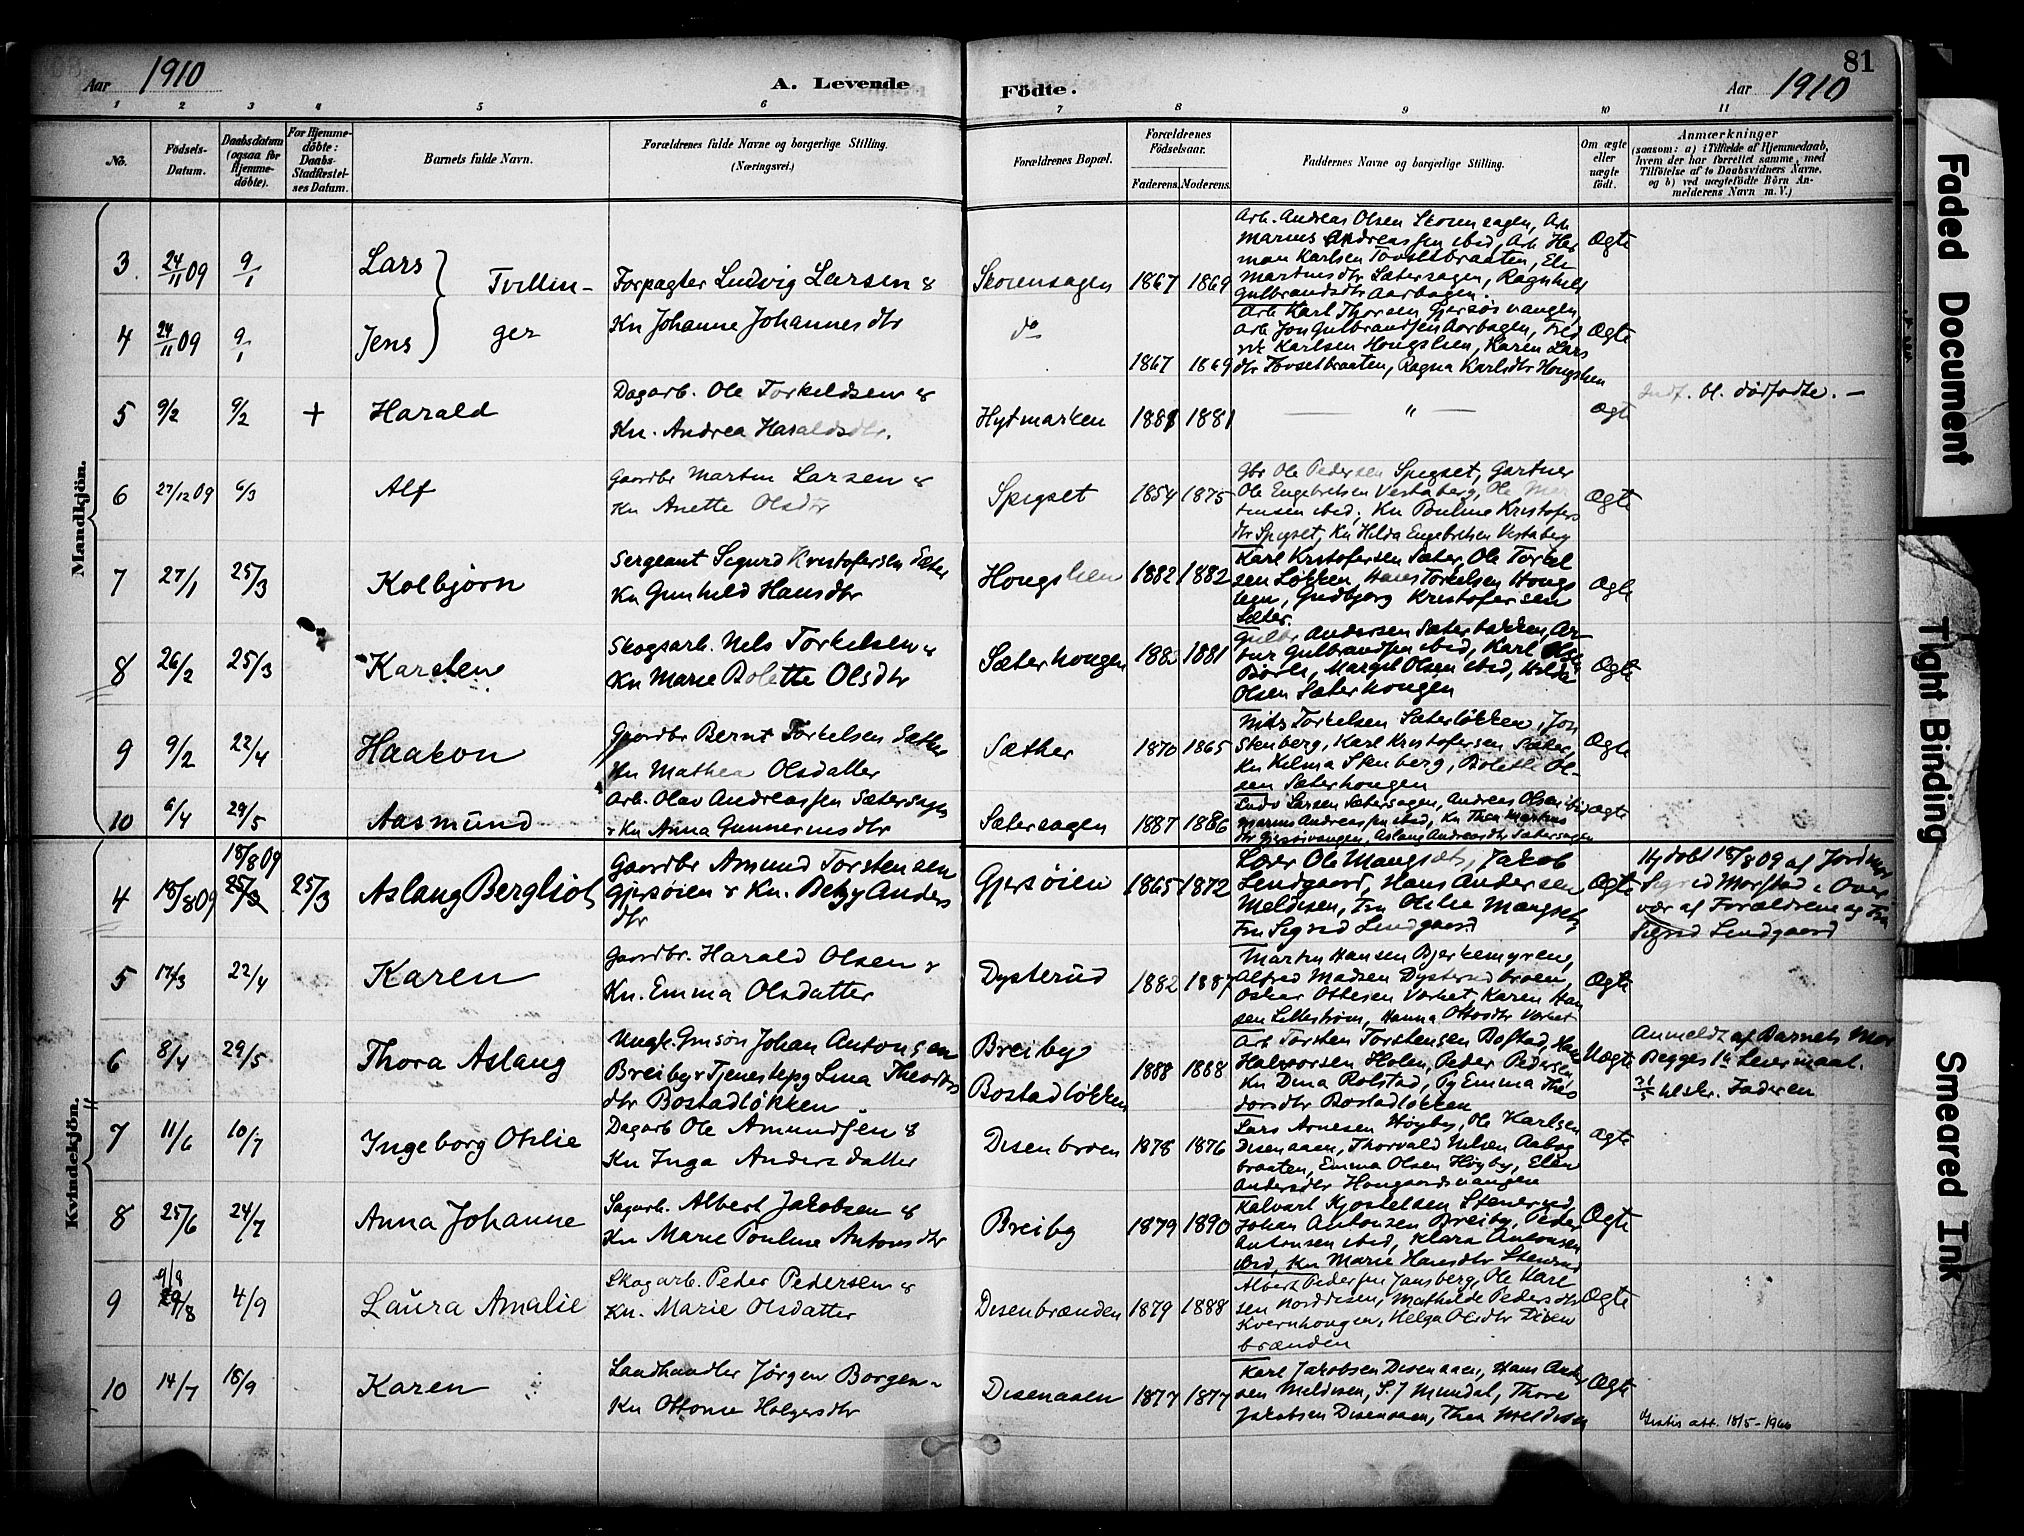 81
Aar 1910
A. Levende Fødte.
Aar 1910
1 2 3 4 5 6 7 8 9 10 11
No.
Fødsels-
Datum.
Daabsdatum
(ogsaa for
Hjemme-
døbte).
For Hjemme-
døbte:
Daabs-
Stadfæstel-
ses Datum.
Barnets fulde Navn.
Forældrenes fulde Navne og borgerlige Stilling.
(Næringsvei.)
Forældrenes Bopæl.
Forældrenes
Fødselsaar.
Faderens. Moderens.
Faddernes Navne og borgerlige Stilling.
Om ægte
eller
uægte
født.
Anmærkninger
(saasom: a) i Tilfælde af Hjemmedaab,
hvem der har forrettet samme, med
Tilføielse af to Daabsvidners Navne,
og b) ved uægtefødte Børn An-
melderens Navn m. V.)
Mandkjøn.
3 24/11 09 9/1 Lars Tvillin-
Forpagter Ludvig Larsen &
Skorensagen 1867 1869
Arb. Andreas Olsen Skorensagen, Arb
Marius Andreassen ibid, Arb. Her
man Karlsen Tovsetbraaten, Eli
Martinsdtr Sætersagen, Ragnhild
Gulbrandsdtr Aarbogen.
Ægte
4 24/11 09 9/1 Jens ger
Kn Johanne Johannesdtr
do 1867 1869
Arb Karl Thorsen Gjersøivangen,
Arb Jon Gulbrandsen Aarbogen, Fred
rik Karlsen Hongslien, Karen Lars
dtr Tovsetbraaten, Ragna Karlsdtr Hongslien
Ægte
5 9/2 9/2 + Harald
Dagarb. Ole Torkeldsen &
Kn. Andrea Haraldsdtr.
Hytmarken 1881 1881
— " —
Ægt
Indf. bl. dødfødte. —
6 27/12 09 6/3 Alf
Gaardbr Martin Larsen &
Kn Anette Olsdtr
Spigset 1854 1875
Gbr Ole Pedersen Spigset, Gartner
Ole Engebretsen Vestaberg, Ole Mar
tinsen ibid, Kn Pauline Kristofers
dtr Spigset, Kn Hilda Engebretsen Vestaberg
Ægte
7 27/1 25/3 Kolbjørn
Sergeant Sigurd Kristofersen Sæter
Kn Gunhild Hansdtr
Hongslien 1882 1882
Karl Kristofersen Sæter, Ole Torkel
sen Løkken, Hans Torkelsen Hongs
lien, Gudbjorg Kristofersen
Sæter.
Ægte
8 26/2 25/3 Karsten
Skogsarb. Nils Torkelsen &
Kn Marie Bolette Olsdtr
Sæterhougen 1883 1881
Gulbr Andersen Sæterbakken, Ar-
tur Gulbrandsen ibid, Karl Olsen
Børli, Margit Olsen ibid, Hilda
Olsen Sæterhougen
Ægte
9 9/2 22/4 Haakon
Gaardbr Bernt Torkelsen Sæther
Kn Mathea Olsdatter
Sæther 1870 1865
Nils Torkelsen Sæterløkken, Jon
Stenberg, Karl Kristofersen Sæter,
Kn Hilma Stenberg, Bolette Ol-
sen Sæterhougen
Ægte
10 6/4 29/5 Aasmund
Arb. Olav Andreassen Sætersagen
& Kn Anna Gunneriusdtr
Sætersagen 1887 1886
Ludv Larsen Sætersagen, Andreas Olsen ibid
Marius Andreassen ibid, Kn Thea Martins
dtr Gjersøivangen, Aslaug Andreasdtr Sætersagen
Ægte
Kvindekjøn.
4 18/8 09 18/8 09 25/3 25/3 Aslaug Bergliot
Gaardbr Amund Torstensen
Gjersøien & Kn. Betzy Anders
dtr
Gjersøien 1865 1872
Lærer Ole Mangset, Jakob
Lendgaard, Hans Andersen
Meldisen, Fru Otilie Mangset,
Fru Sigrid Lendgaard
Ægte
Hjdøbt 18/8 09 af Jordmor
Sigrid Morstad i Over
vær af Forældrene og Fru
Sigrid Lendgaard
5 17/3 22/4 Karen
Gaardbr. Harald Olsen &
Kn. Emma Olsdatter
Dysterud 1882 1887
Martin Hansen Bjerkemyren,
Alfred Madsen Dysterudbroen,
Oskar Ottesen Varhet, Karen Han
sen Lillestrøm, Hanna Ottosdtr Varhet
Ægte
6 8/4 29/5 Thora Aslaug
Ungk. Gmsøn Johan Antonsen
Breiby & Tjenestepg Lina Theodors
dtr Bostadløkken
Breiby
Bostadløkken
1888 1888
Arb Torsten Torstensen Bostad, Hans
Halvorsen Holen, Peder Pedersen,
Kn Dina Rolstad, Pg Emma Theo
dorsdtr Bostadløkken
Uægte
Anmeldt af Barnets Mor
Begges 1te Leiermaal.
31/5 tilskr. Faderen
7 11/6 10/7 Ingeborg Otilie
Dagarb Ole Amundsen &
Kn Inga Andersdatter
Disenbroen 1878 1876
Lars Arnesen Høyby, Ole Karlsen
Disenaaen, Thorvald Nilsen Aabog
braaten, Emma Olsen Høyby, Elen
Andersdtr Hongaardsvangen
Ægte
8 25/6 24/7 Anna Johanne
Sagarb. Albert Jakobsen &
Kn Marie Pauline Antonsdtr
Breiby 1879 1890
Halvart Kjostelsen Stenerud,
Johan Antonsen Breiby, Peder
Antonsen ibid, Klara Antonsen
ibid, Kn Marie Hansdtr Stenerud
Ægte
9 9/8 4/9 Laura Amalie
Skogarb. Peder Pedersen &
Kn. Marie Olsdatter
Disenbrænden 1879 1888
Albert Pedersen Jansberg, Ole Karl
sen Norddisen, Mathilde Pedersdtr
Kvernhougen, Helga Olsdtr Disen
brænden
Ægte
10 14/7 18/9 Karen
Landhandler Jørgen Borgen &
Kn Ottomine Holgersdtr
Disenaaen 1877 1877
Karl Jakobsen Disenaaen, Hans Ander
sen Meldisen, S. J Mundal, Thora
Jakobsen Disenaaen, Thea Meldisen
Ægte
Gratis att. 18/5-1966
Faded Document
Tight Binding
Smeared Ink